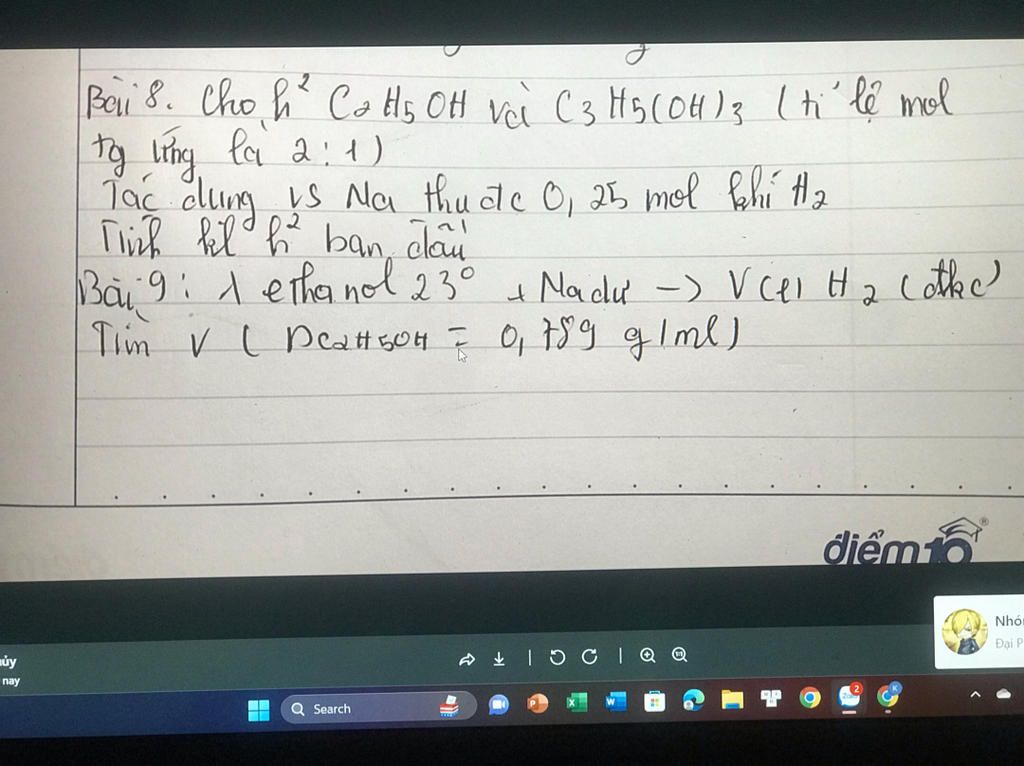 Bài 8. Cho h² C2H5OH và C3H5(OH)3 (tỉ lệ mol
tg ứng là 2:1)
Tác dụng vs Na thu đc 0,25 mol khí H2
Tính kl h² ban đầu
Bài 9: λ ethanol 23° + Na dư -> V(l) H2 (đkc)
Tìm V ( DC2H5OH = 0,789 g/ml)
điểm10
®
Nhó
Đại P
ủy
nay
Search
2